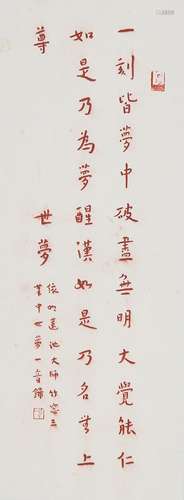 一刻皆夢中破盡無明大覺能仁
如是乃為夢醒漢如是乃名無上
尊
世夢
明蓮池大師竹窗三
筆中世夢一音錄